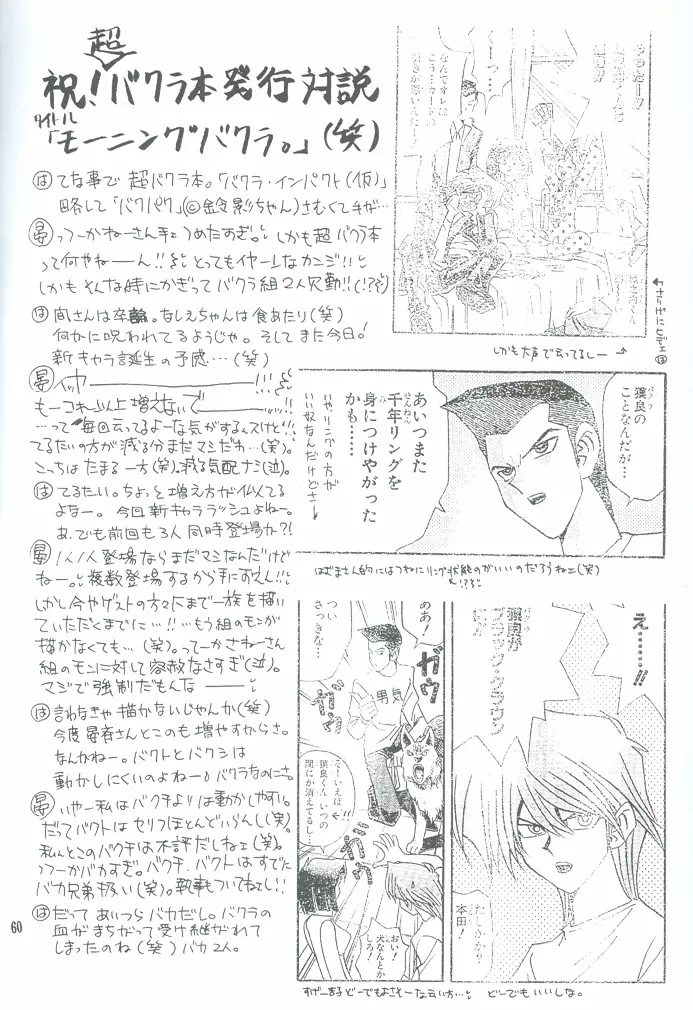 超
祝!バクラ本発行対説
タイトル
「モーニングバクラ。」(笑)
は てな事で 超バクラ本。「バクラ・インパクト(仮)」
略して「バクパク」(©鈴影ちゃん)さむくてチガ…
晏 っつーかねーさん手ェつめたすぎ。しかも超バクラ本
って何やねーん!!とってもイヤーンなカンジ!!
しかもそんな時にかぎってバクラ組2人欠勤!!(!??)
は 尚さんは卒論。なしえちゃんは食あたり(笑)
何かに呪われてるようじゃ。そしてまた今日!
新キャラ誕生の予感…(笑)
晏 イッカーーー!!!
もーコレ以上増えないでーーー!!
…って毎回云ってるよーな気がするんですけど!!
てるたいの方が減る分まだマシだわ…(笑)。
こっちはたまる一方(笑)。減る気配ナシ(泣)。
は てるたい。ちょっと増え方が似てる
よなー。今回新キャララッシュよねー。
あ、でも前回も3人同時登場か?!
晏 1人1人登場ならまだマシなんだけど
ねー。複数登場するから手にずえん!!
しかし今やゲストの方々にまで一族を描い
ていただくまでに…!!…もう組のモンが
描かなくても…(笑)。ってーかさねーさん
組のモンに対して容赦なさすぎ(泣)。
マジで強制だもんなーーー
は 言わなきゃ描かないじゃんか(笑)
今度晏斉さんとこのも増やすからさ。
なんかねー。バクトとバクシは
動かしにくいのよねー。バクラなのにさ。
晏 いやー私はバクチよりは動かしやすい。
だってバクトはセリフほとんどいらんし(笑)。
私んとこのバクチは不評だしねェ(笑)。
っつーかバカすぎ。バクチ、バクトはすでに
バカ兄弟扱い(笑)。執事もついてねェし!!
は だって あいつらバカだし。バクラの
血がまちがって受け継がれて
しまったのね(笑)バカ2人。
60
やったーー!!
しかも大声で云ってるしー
獏良の
ことなんだが…
バクラ
あいつまた
千年リングを
身につけやがった
かも……
せんねん
み
いやリングの方が
いい奴なんだけどさー
はざまさん的にはつねにリング状態のがいいのだろうねェ(笑)
ああ!
つい
さっきな…
ガウ
ガウ
男気
そーいえば
獏良くん いつの
間にか消えてるし…
!!
おい!
犬なんとか
しろ!
え……!!
獏良が
ブラック・クラウン
に!?
たしかか?
本田!
すげーまるどーでもよさそーな云い方…
どーでもいいしな。